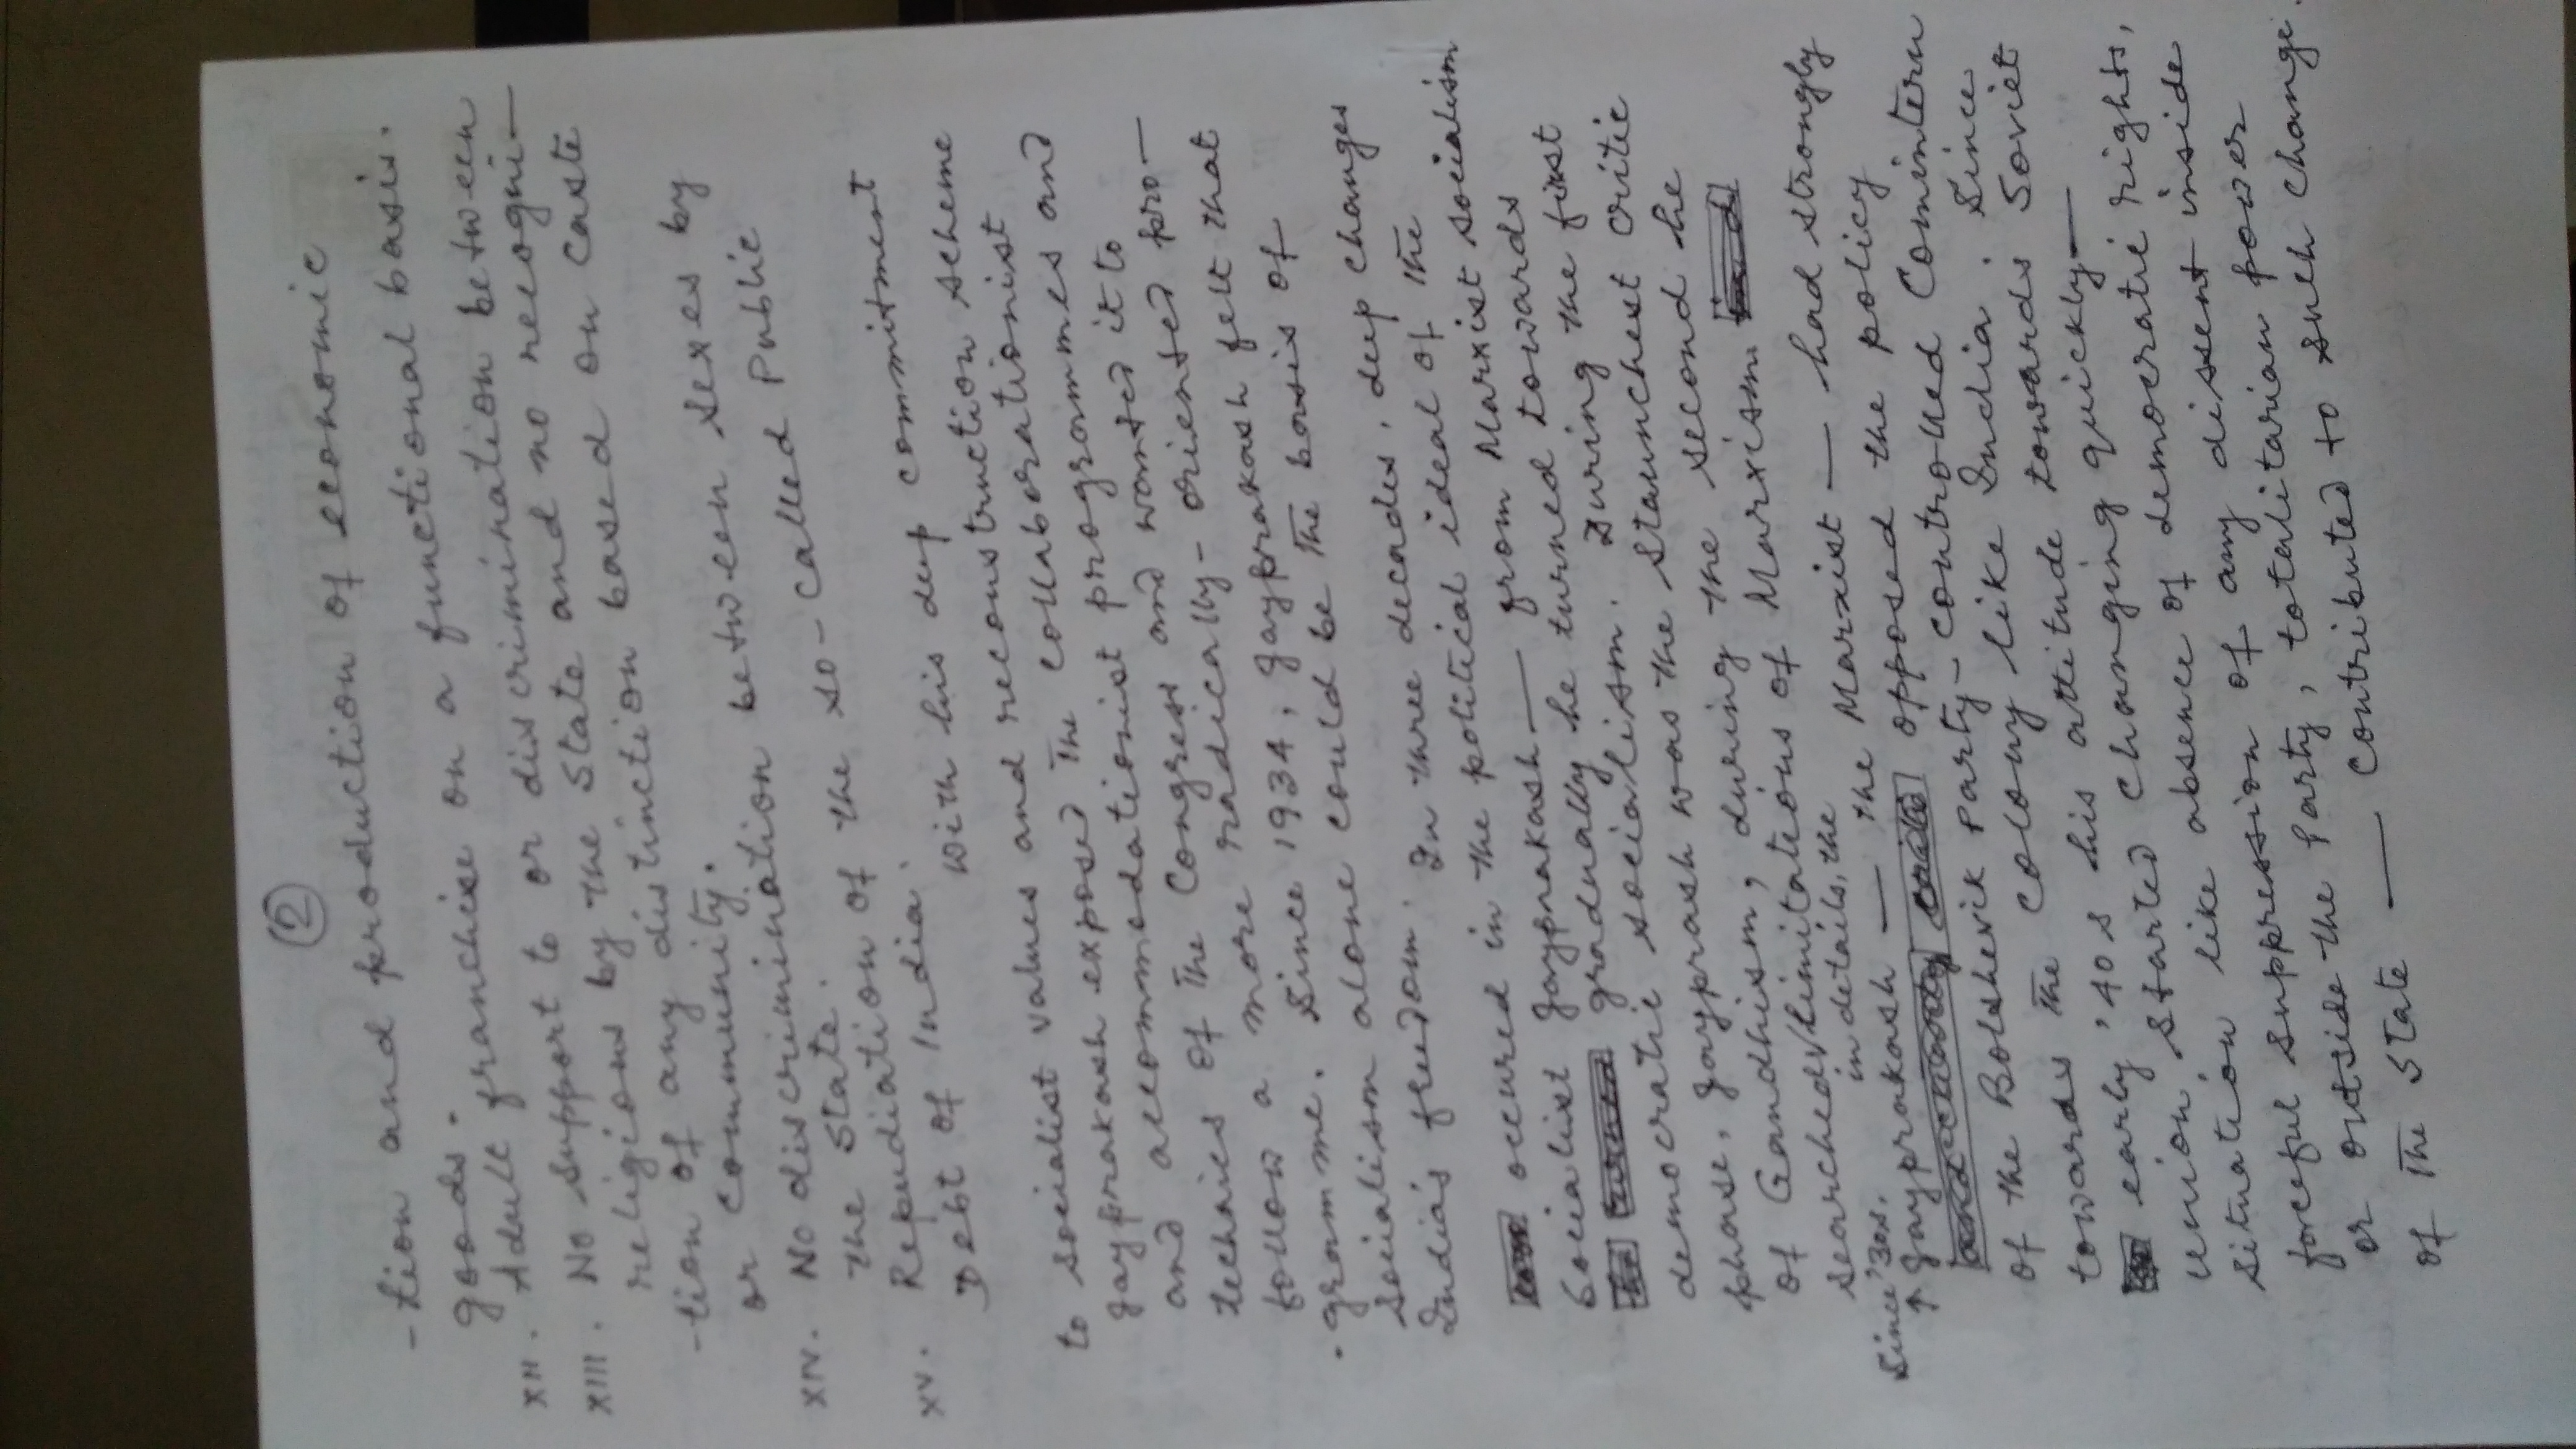 ②
-tion and production of economic
goods.
XII. Adult franchise on a functional basis.
XIII. No support to or discrimination between
religions by the State and no recogni-
-tion of any distinction based on caste
or community.
XIV. No discrimination between sexes by
the State.
XV. Repudiation of the so-called Public
Debt of India.
with his deep commitment
to socialist values and reconstruction scheme
Jayprakash exposed the collaborationist
and accommodationist programmes and
technics of the Congress and wanted it to
follow a more radically-oriented pro-
-gramme. Since 1934, Jayprakash felt that
Socialism alone could be the basis of
India's freedom. In three decades, deep changes
occured in the political ideal of the
Socialist Jayprakash — from Marxist socialism
gradually he turned towards
democratic socialism. During the first
phase, Jayprash was the staunchest critic
of Gandhism, during the second he
searched limitations of Marxism
in details, the
Since '30s.
↑ Jayprakash — the Marxist — had strongly
opposed the policy
of the Bolshevik Party-controlled Comintern
towards the colony like India. Since
early '40s his attitude towards Soviet
Union started changing quickly —
situation like absence of democratic rights,
forceful suppression of any dissent inside
or outside the Party, totalitarian power
of the State — contributed to such change.